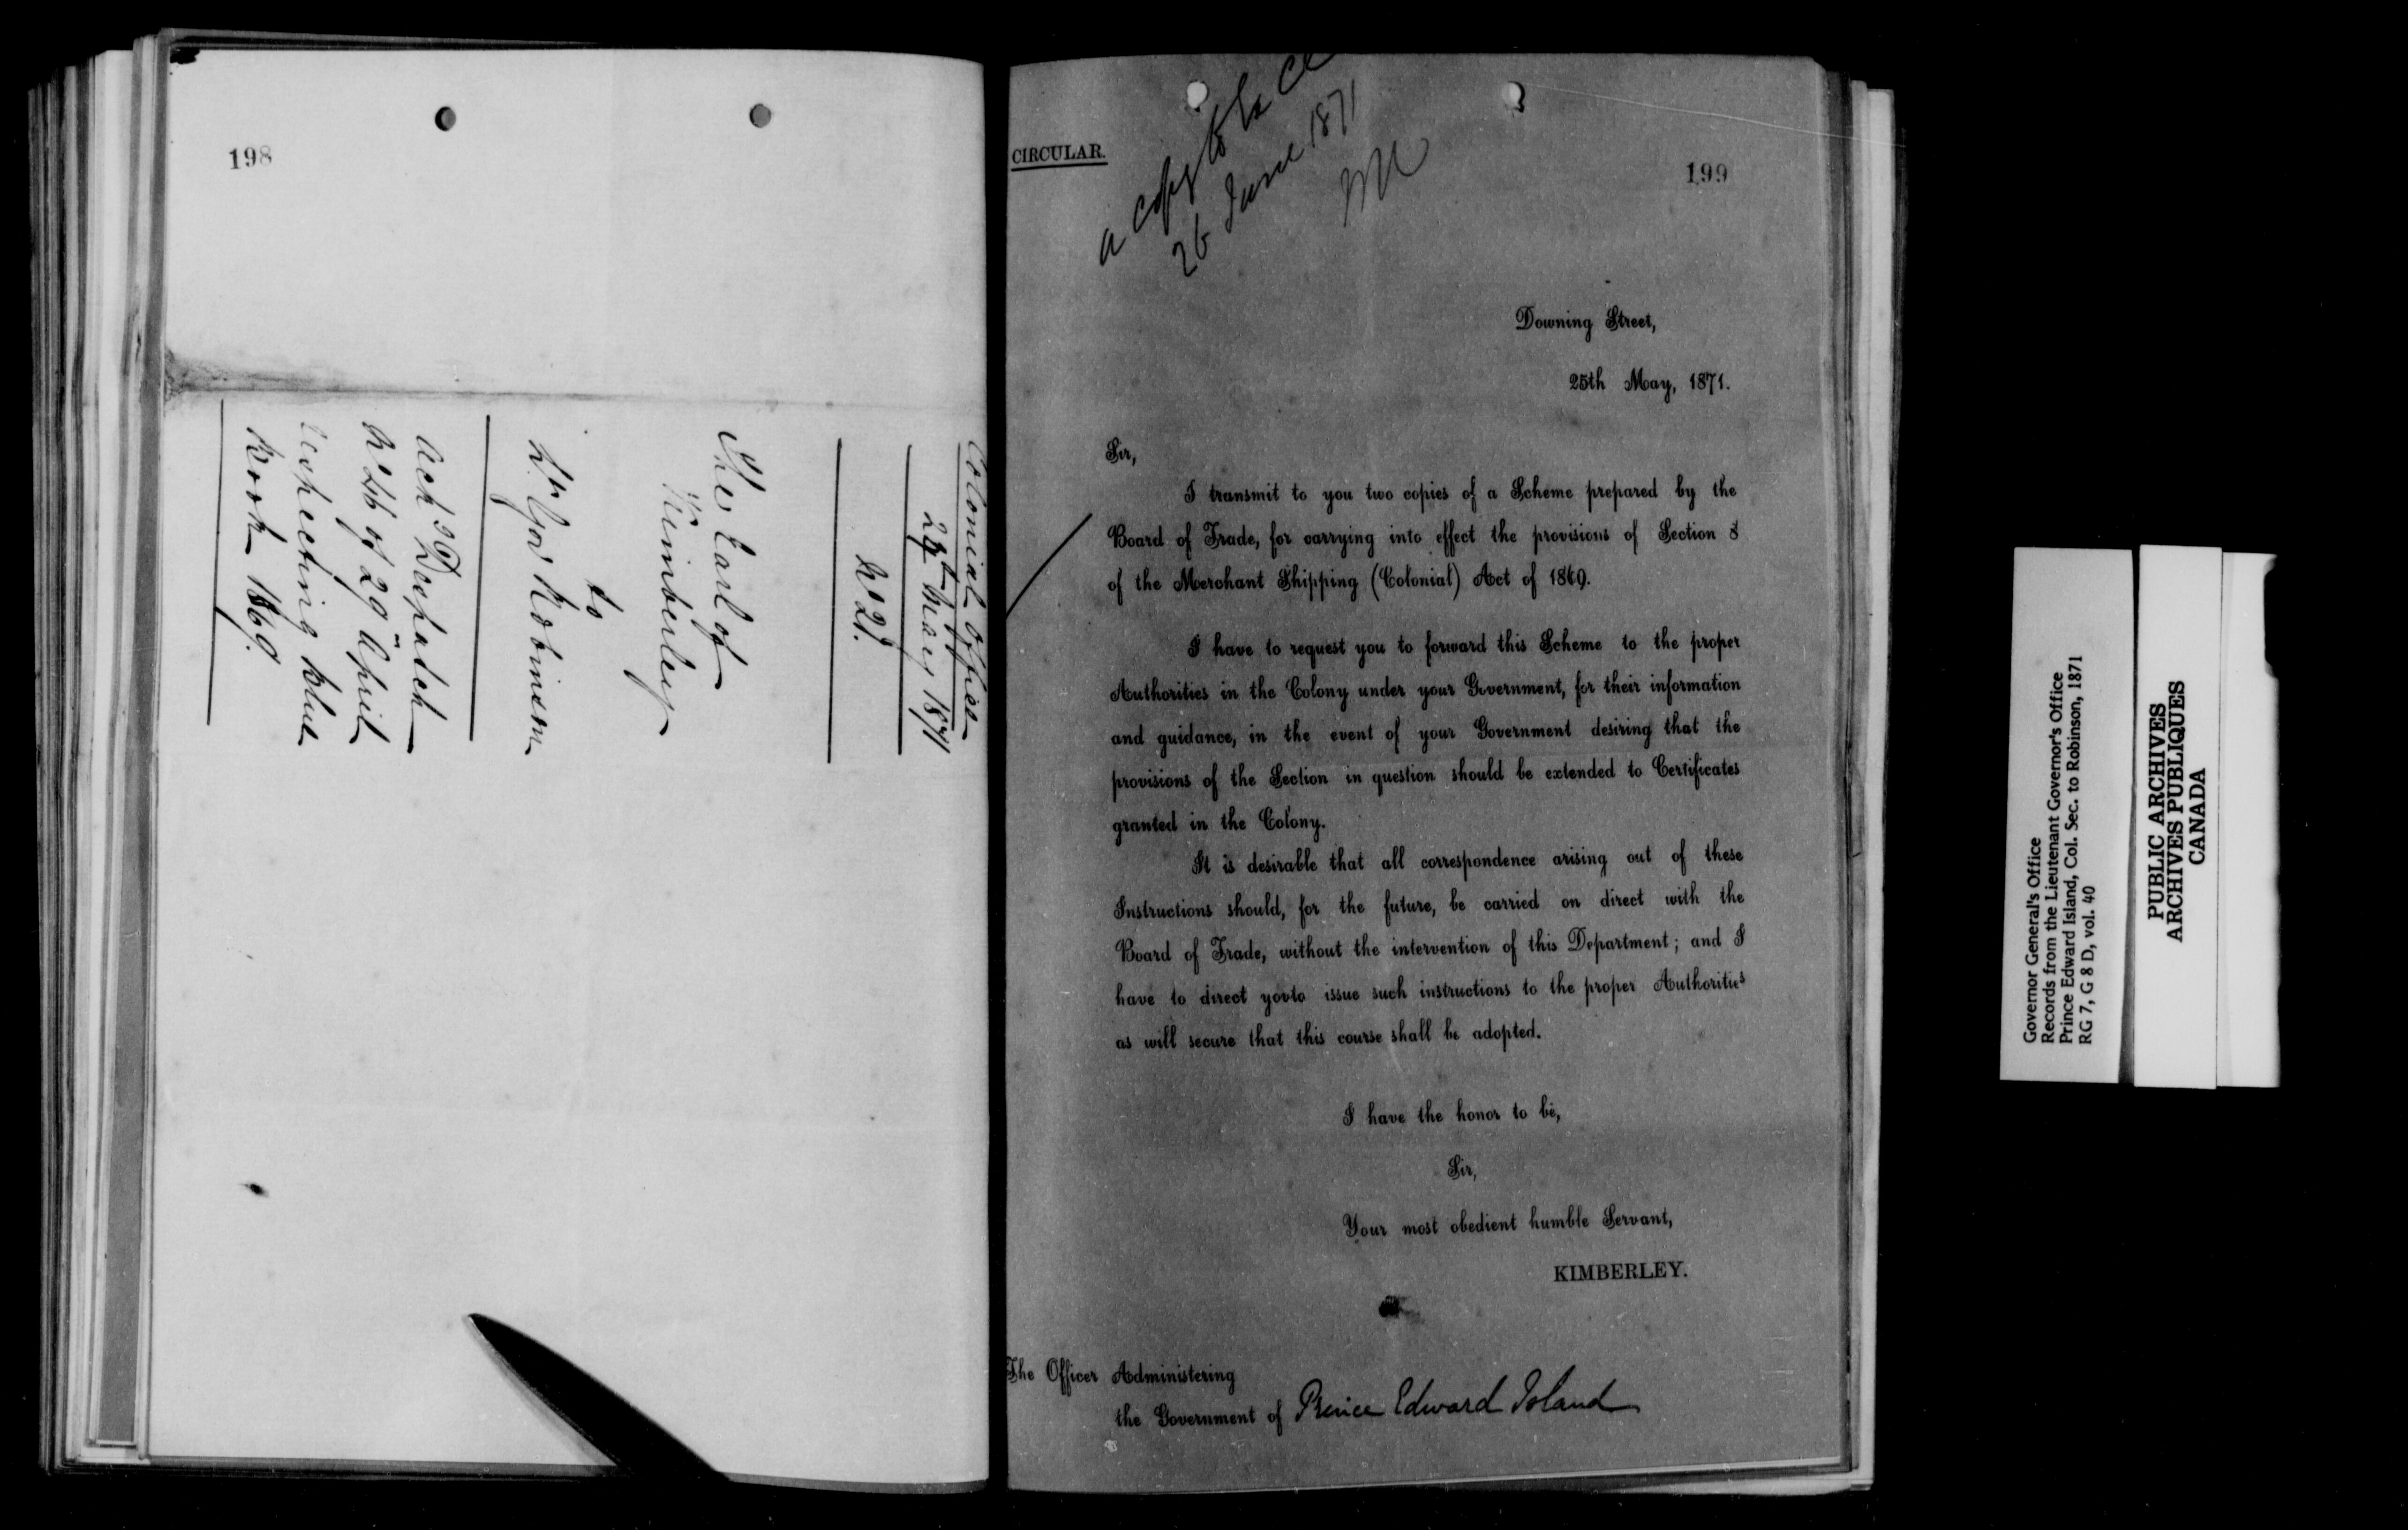 198
Colonial Office
May 1871
No 21.
The Earl of
Kimberley
to
Lt. Gov. Robinson
Ack Despatch
No 26 of 29 April
respecting Blue
Book 1869.
CIRCULAR.
a copy to
26 June 1871
199
Downing Street,
25th May, 1871.
Sir,
I transmit to you two copies of a Scheme prepared by the
Board of Trade, for carrying into effect the provisions of Section 8
of the Merchant Shipping (Colonial) Act of 1869.
I have to request you to forward this Scheme to the proper
Authorities in the Colony under your Government, for their information
and guidance, in the event of your Government desiring that the
provisions of the Section in question should be extended to Certificates
granted in the Colony.
It is desirable that all correspondence arising out of these
Instructions should, for the future, be carried on direct with the
Board of Trade, without the intervention of this Department; and I
have to direct yovto issue such instructions to the proper Authorities
as will secure that this course shall be adopted.
I have the honor to be,
Sir,
Your most obedient humble Servant,
KIMBERLEY.
The Officer Administering
the Government of Prince Edward Island
Governor General's Office
Records from the Lieutenant Governor's Office
Prince Edward Island, Col. Sec. to Robinson, 1871
RG 7, G 8 D, vol. 40
PUBLIC ARCHIVES
ARCHIVES PUBLIQUES
CANADA